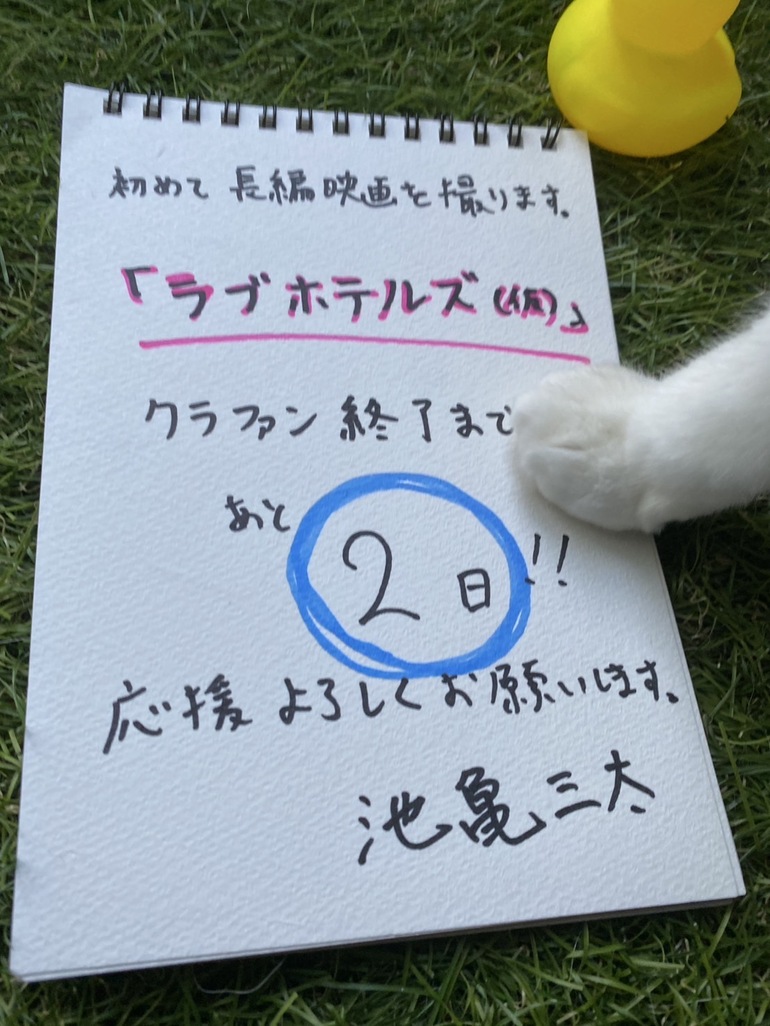 初めて長編映画を撮ります。
「ラブホテルズ(仮)」
クラファン終了まで
あと
2日!!
応援よろしくお願いします。
池亀三太